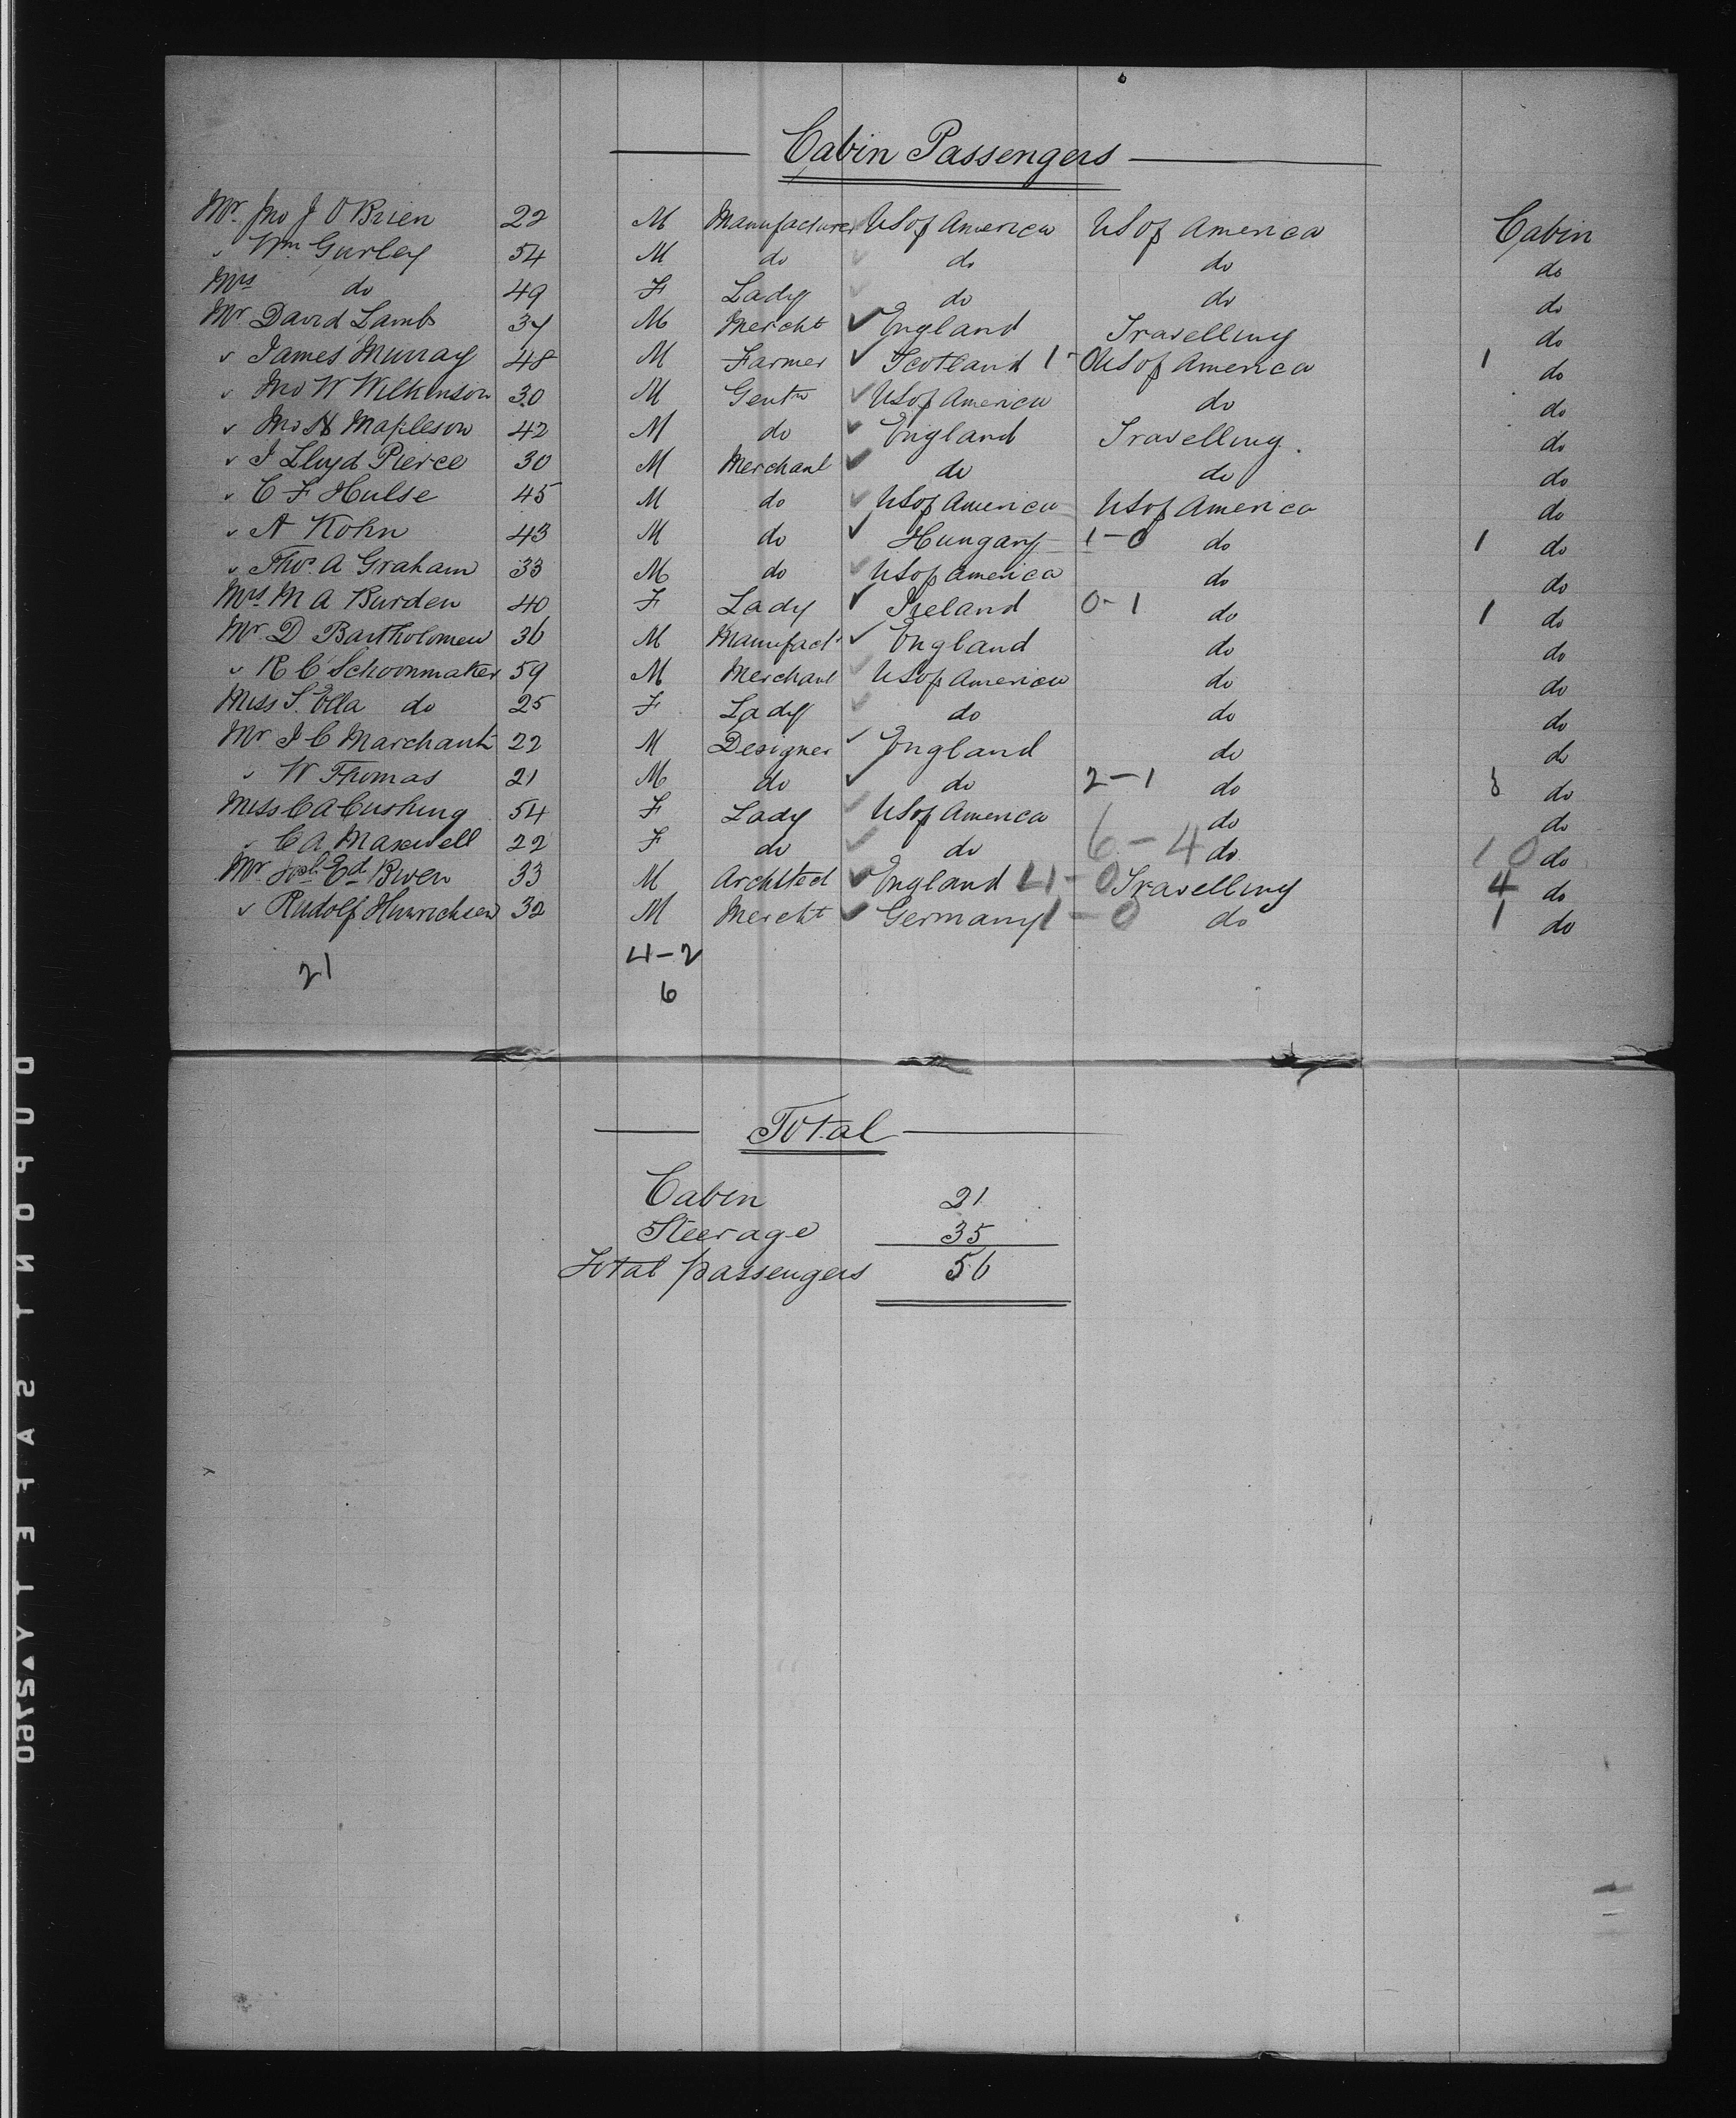 Cabin Passengers
Mr. Jno J O'Brien 22 M Manufacturer US of America US of America Cabin
" Wm Gurley 54 M do do do do
Mrs do 49 F Lady do do do
Mr David Lamb 37 M Mercht England Travelling do
" James Murray 48 M Farmer Scotland 1- US of America 1 do
" Jno W Wilkinson 30 M Gentn US of America do do
" Jno H Mapleson 42 M do England Travelling. do
" J Lloyd Pierce 30 M Merchant do do do
" C F Hulse 45 M do US of America US of America do
" A Kohn 43 M do Hungary 1-0 do 1 do
" Thos. A Graham 33 M do US of America do do
Mrs M A Burden 40 F Lady Ireland 0-1 do 1 do
Mr. D Bartholomew 36 M Manufactr England do do
" R C Schoonmaker 59 M Merchant US of America do do
Miss S. Ella do 25 F Lady do do do
Mr J C Marchant 22 M Designer England do do
" W Thomas 21 M do do 2-1 do 3 do
Miss C A Cushing 54 F Lady US of America do do
" C A Maxwell 22 F do do 6-4 do 10 do
Mr Ed. Bwen 33 M Architect England 4-0 Travelling 4 do
" Rudolf Hinrichsen 32 M Mercht Germany 1-0 do 1 do
21 4-2
6
Total
Cabin 21
Steerage 35
Total passengers 56
DUPONT SAFETY